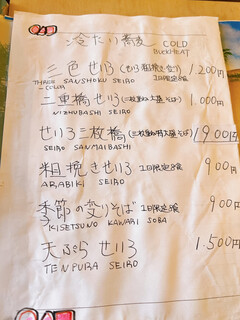 冷たい蕎麦 COLD
BUCKWEAT
三色せいろ (せいろ粗挽き変り) 1,200円
THREE SANSHOKU SEIRO 1日限定8食
COLOR
二重橋せいろ (二枚重ね大盛そば) 1,000円
NIZHUBASHI SEIRO
せいろ三枚橋 (三枚重ね特大盛そば) 1,900円
SEIRO SANMAIBASHI
粗挽きせいろ 1日限定8食 900円
ARABIKI SEIRO
季節の変りそば 1日限定8食 900円
KISETSUNO KAWARI SOBA
天ぷらせいろ 1.500円
TENPURA SEIRO